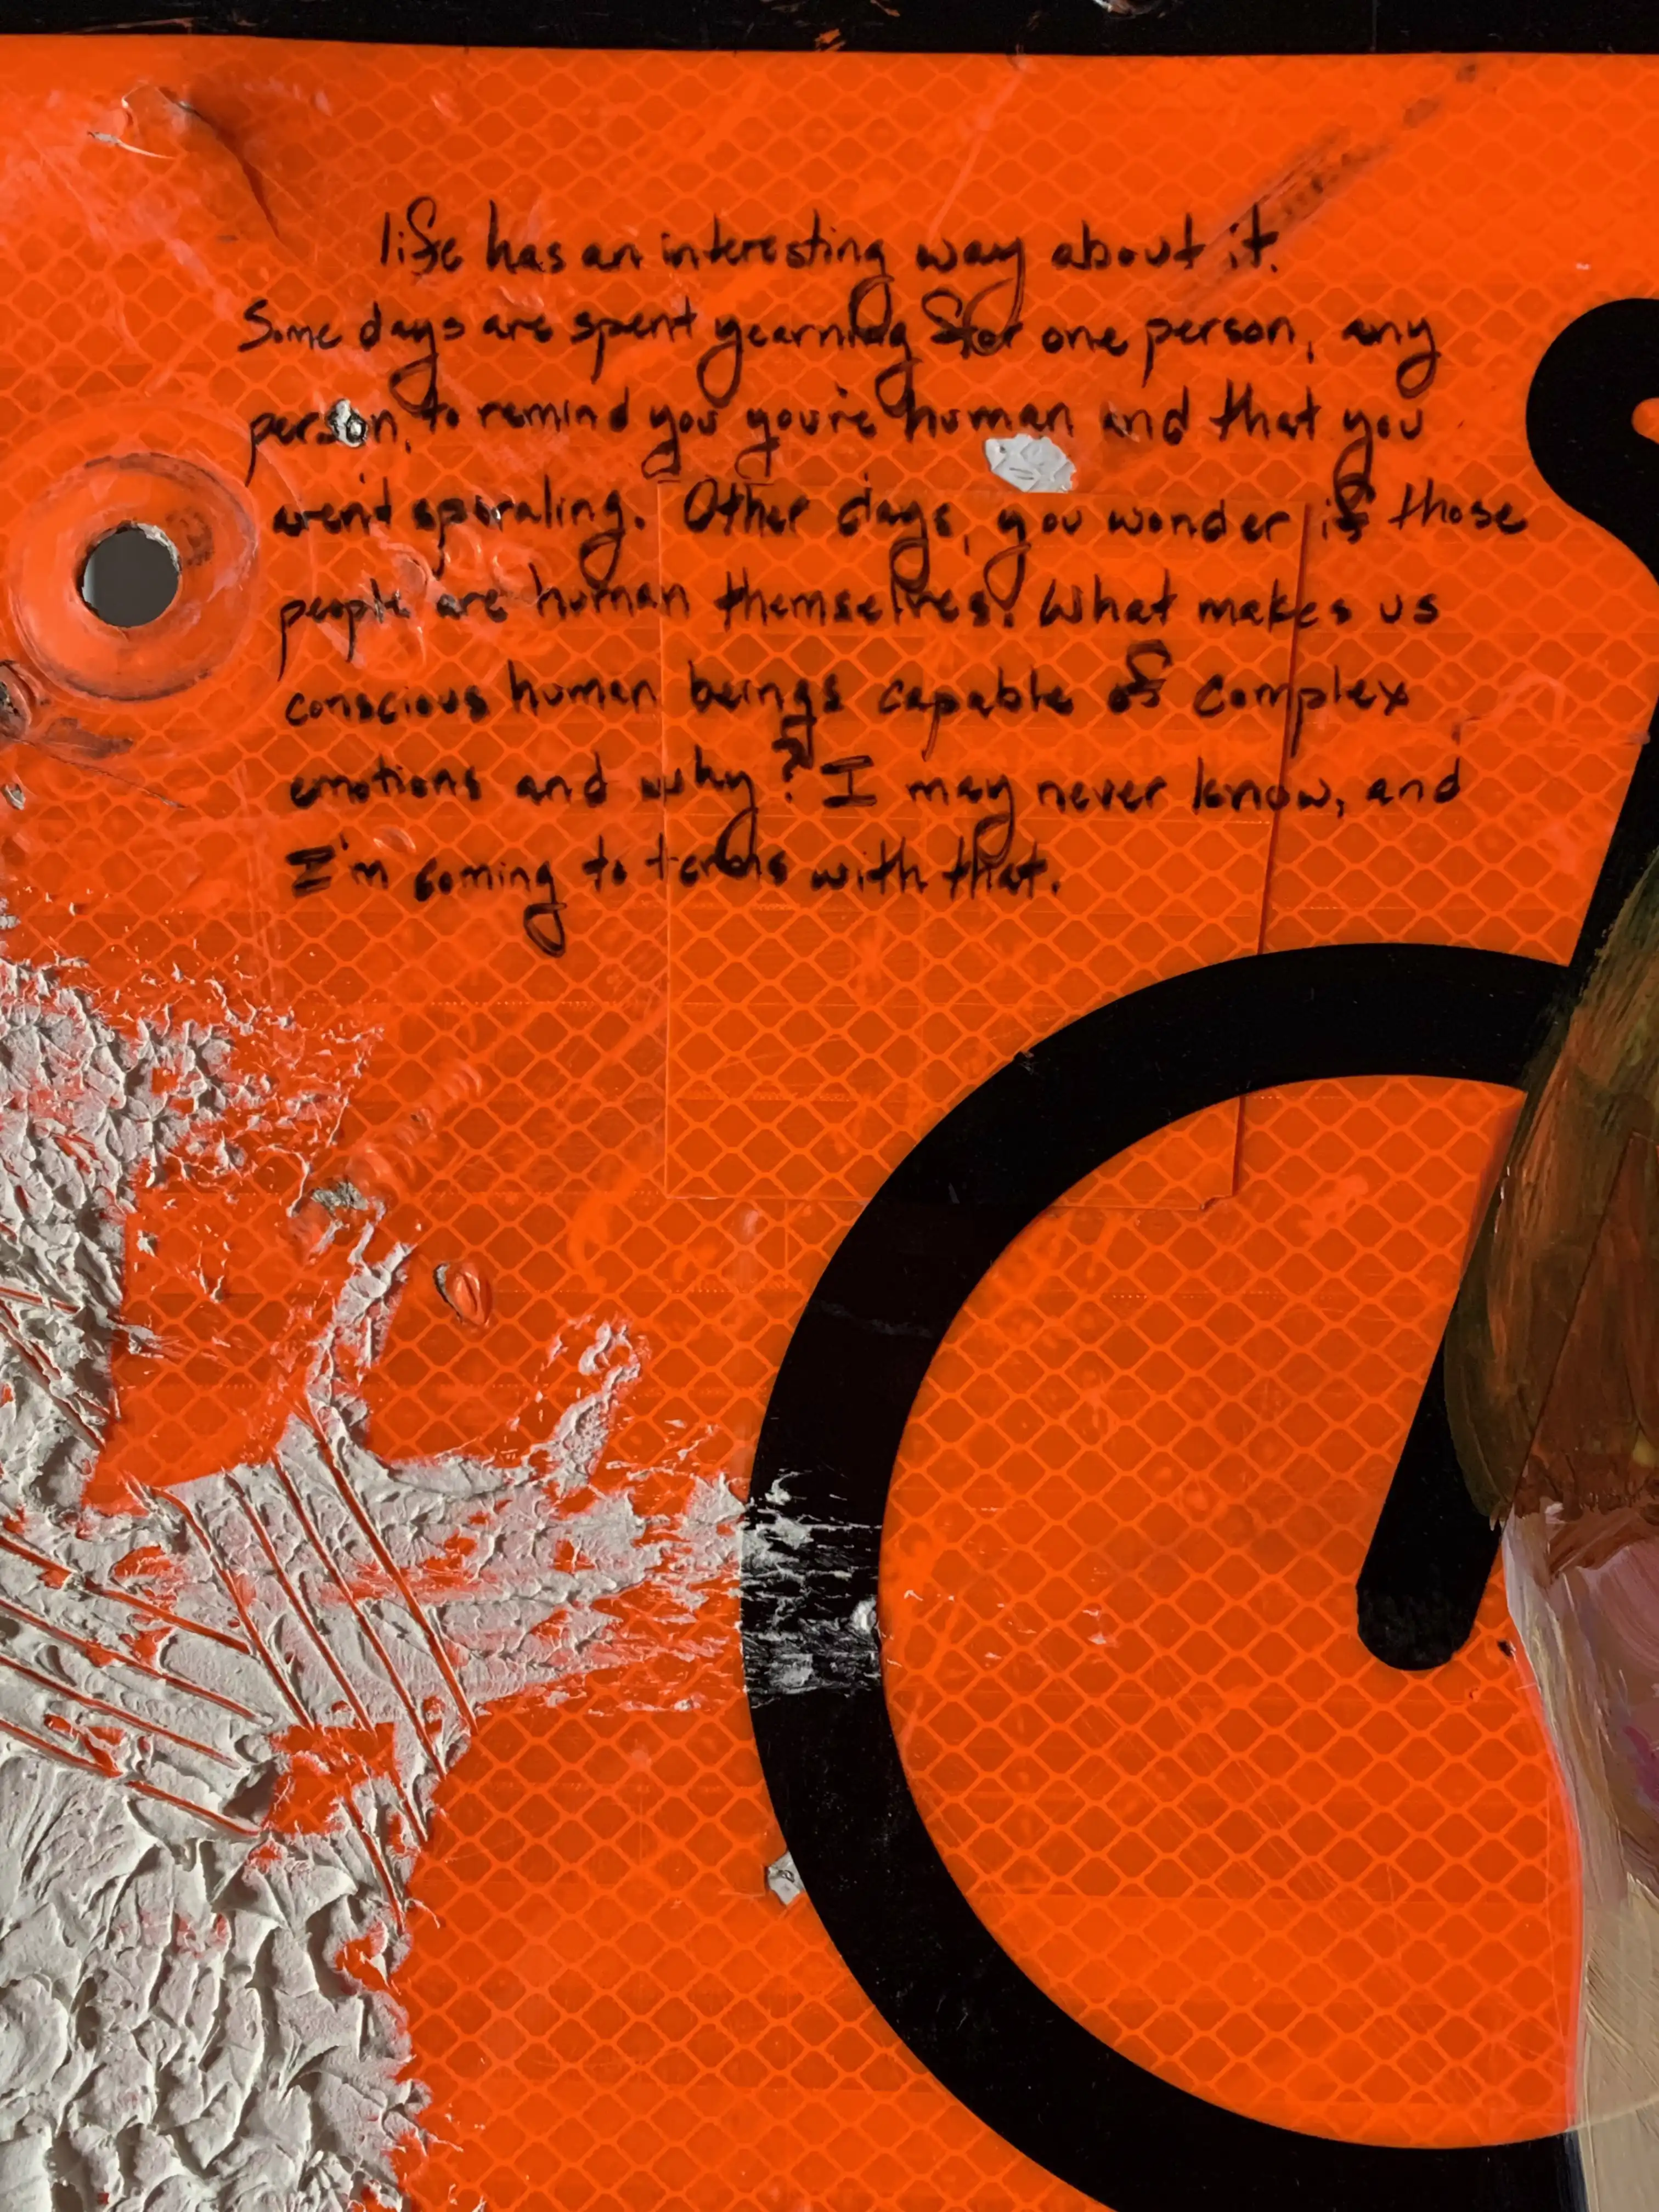 life has an interesting way about it.
Some days are spent yearning for one person, any
person, to remind you you're human and that you
aren't sporaling. Other days, you wonder if those
people are human themselves. What makes us
conscious human beings capable of complex
emotions and why? I may never know, and
I'm coming to terms with that.